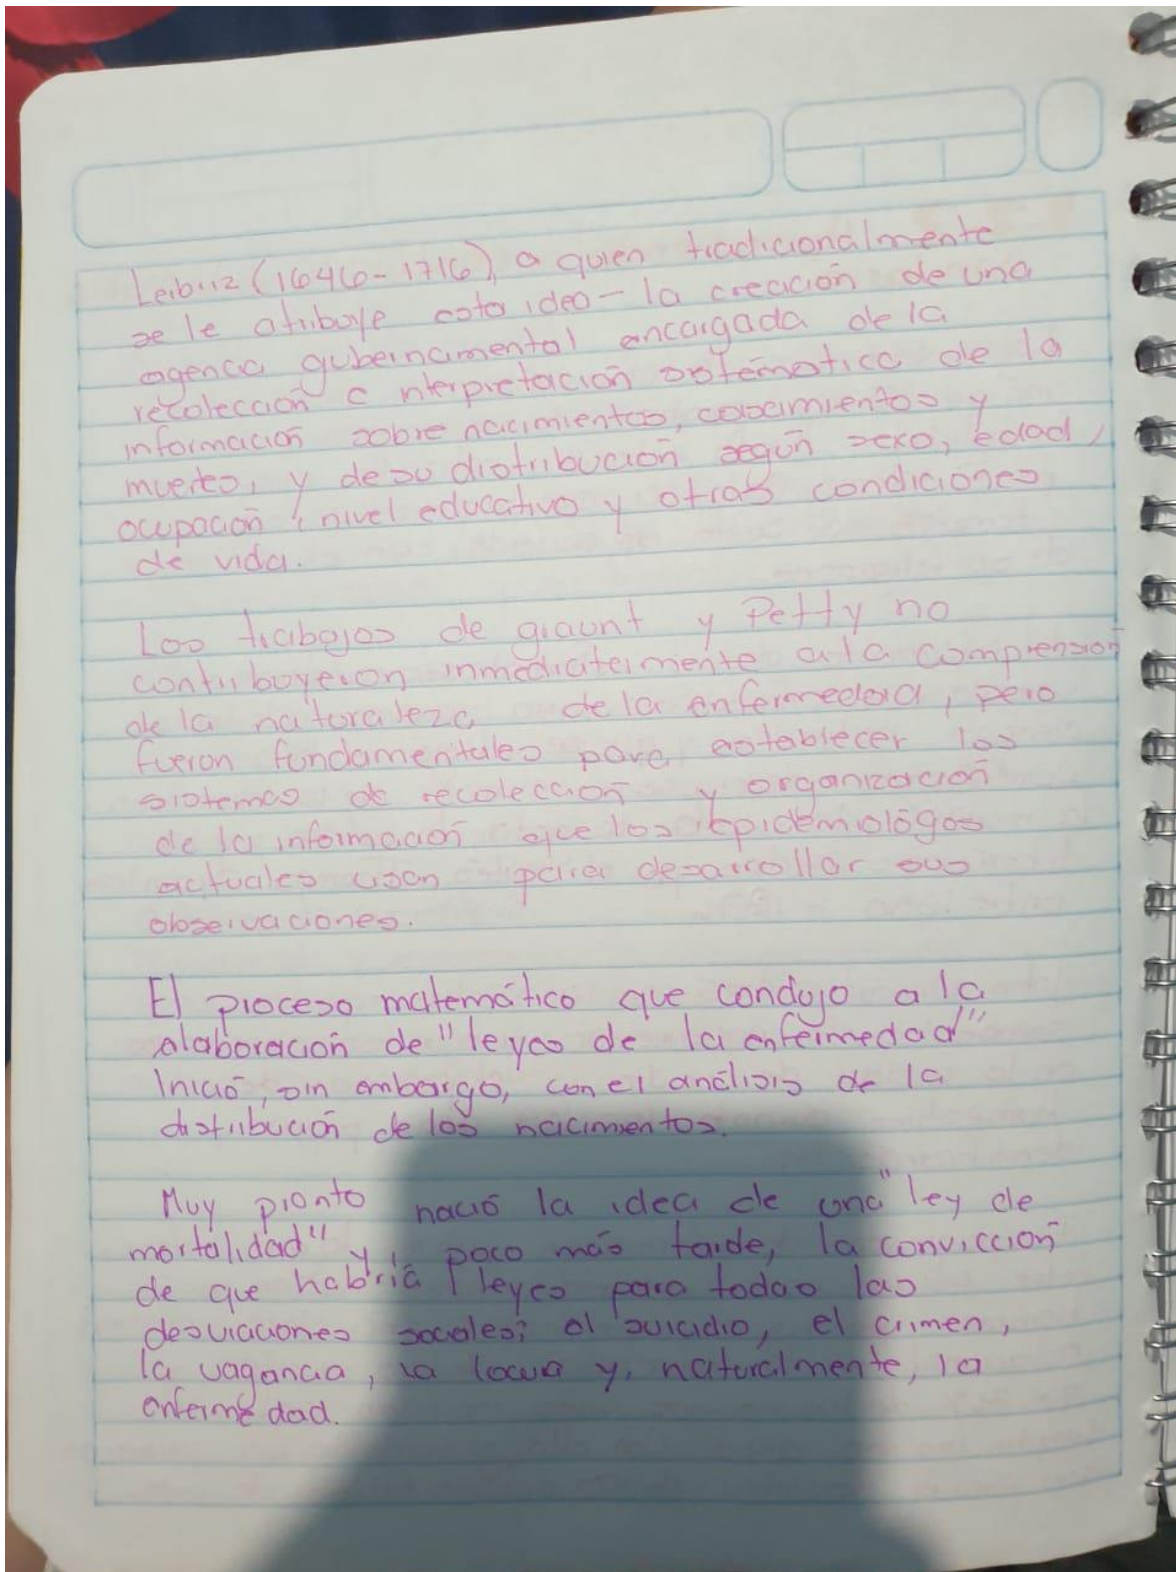 Leibniz (1646-1716), a quien tradicionalmente
se le atribuye esta idea - la creación de una
agencia gubernamental encargada de la
recolección e nterpretación sistemática de la
información sobre nacimientos, casamientos y
muertes, y de su distribución según sexo, edad,
ocupación, nivel educativo y otras condiciones
de vida.
Los trabajos de graunt y Petty no
contribuyeron inmediatamente a la comprensión
de la naturaleza de la enfermedad, pero
fueron fundamentales para establecer los
sistemas de recolección y organización
de la información que los epidemiológos
actuales usan para desarrollar sus
observaciones.
El proceso matemático que condujo a la
alaboración de "leyes de la enfermedad"
Inició, sin embargo, con el análisis de la
distribución de los nacimientos.
Muy pronto nació la idea de una "ley de
mortalidad" y, poco más tarde, la convicción
de que habría leyes para todas las
desviaciones sociales; el suicidio, el crimen,
la vagancia, la locura y, naturalmente, la
enfermedad.